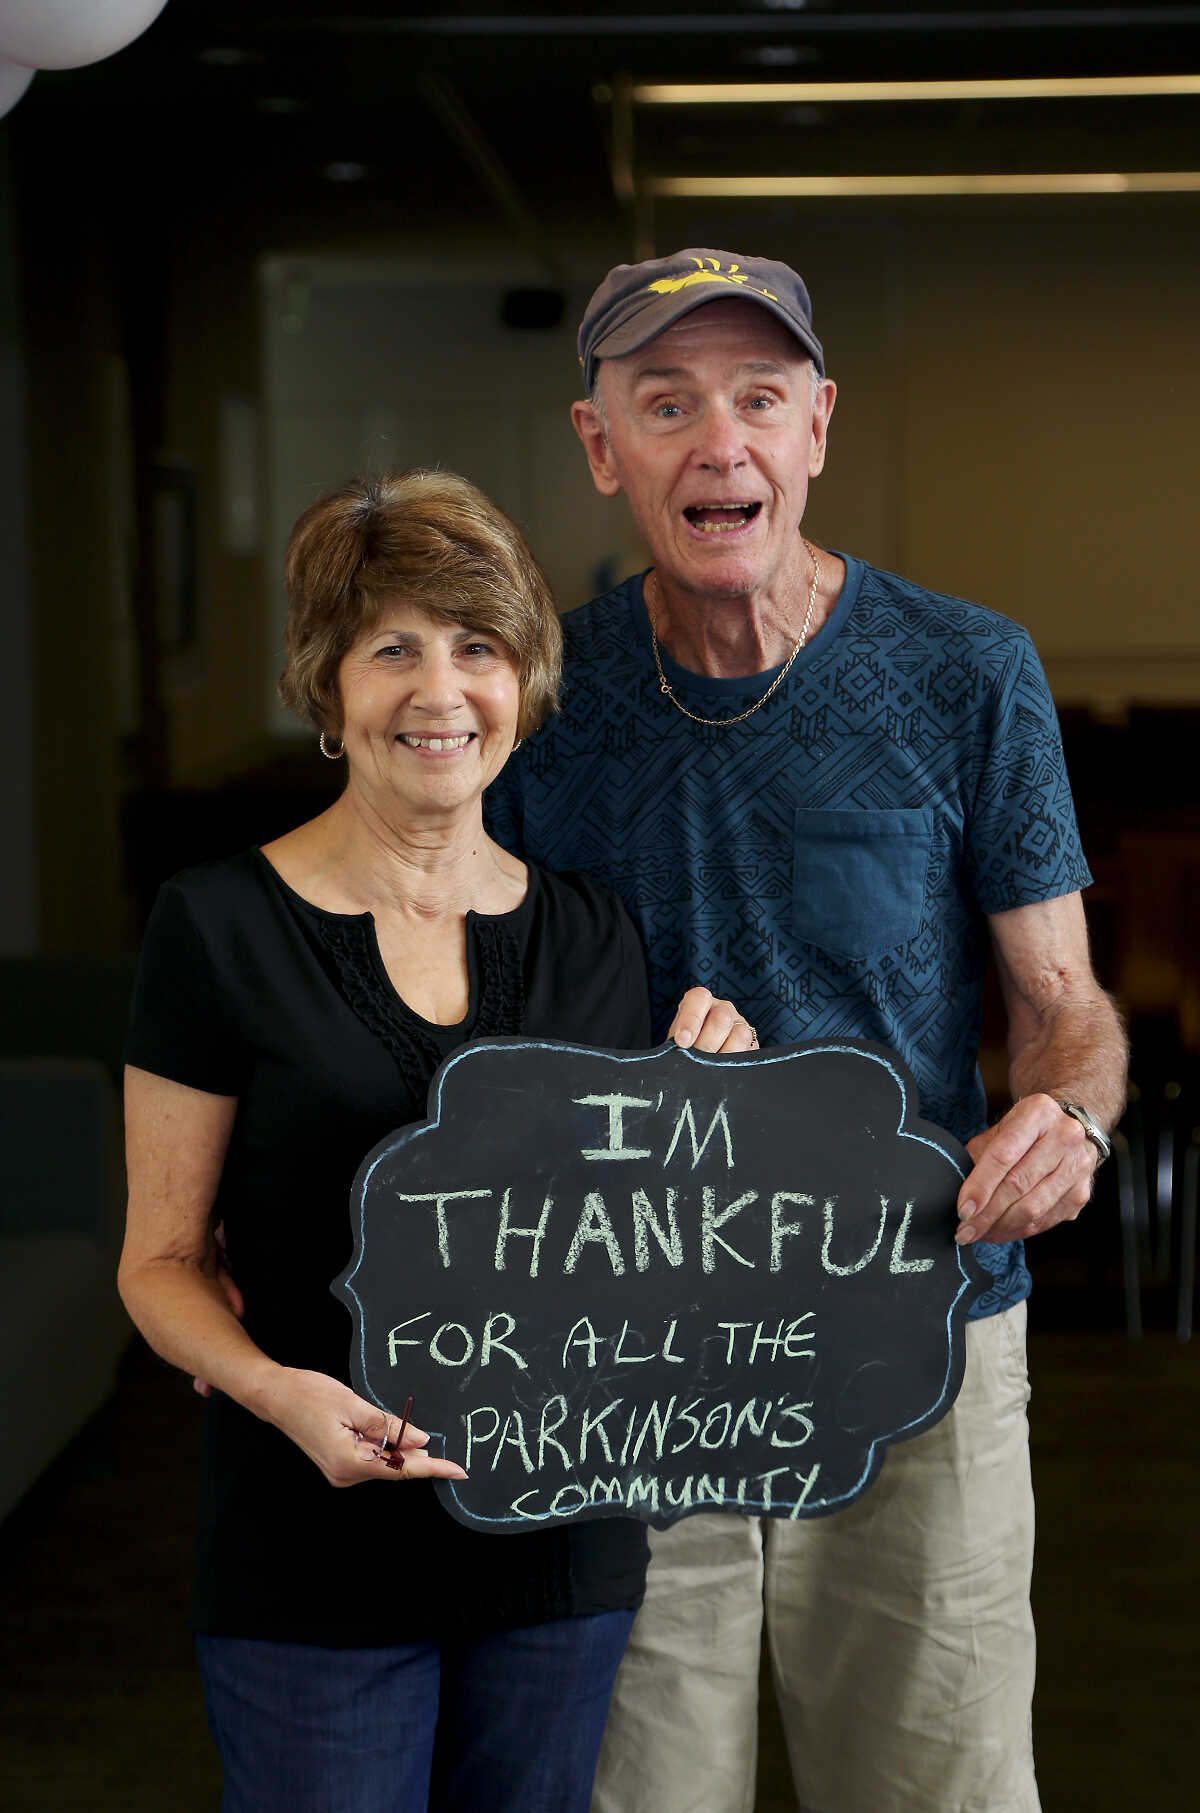 I'M
THANKFUL
FOR ALL THE
PARKINSON'S
COMMUNITY.